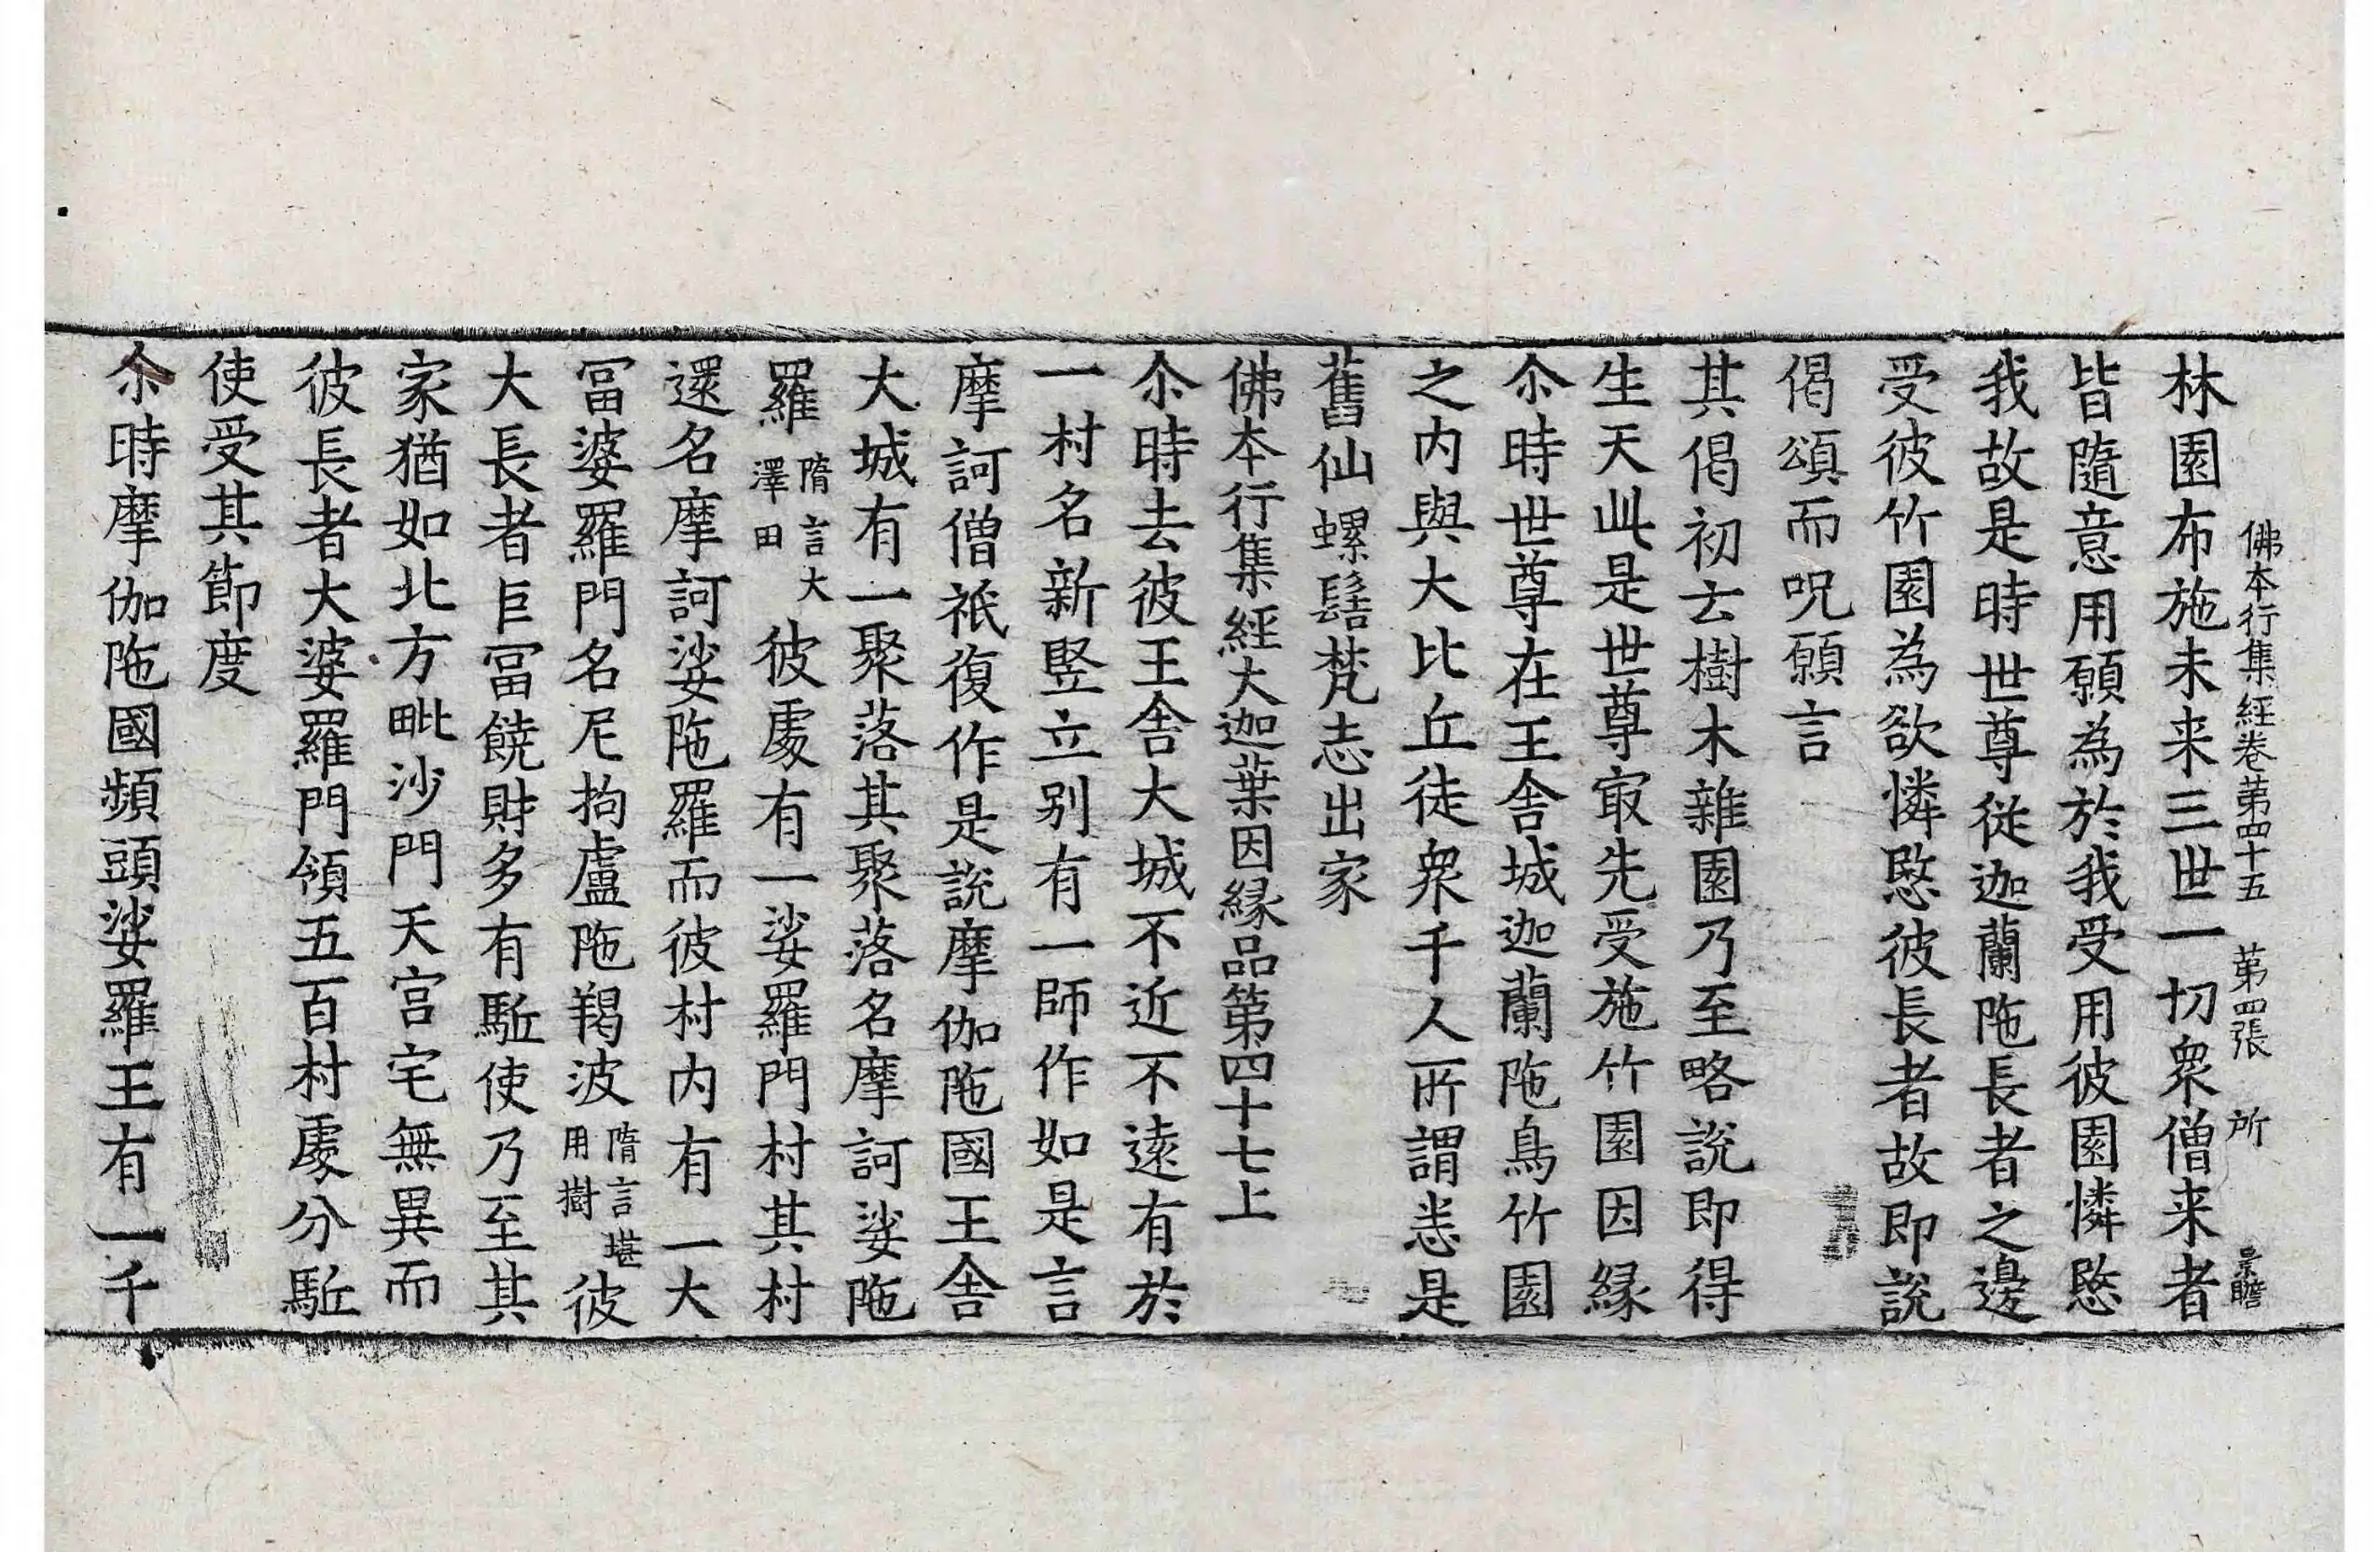 佛本行集經卷第四十五　第四張　所　景瞻
林園布施未来三世一切衆僧来者
皆隨意用願為於我受用彼園憐愍
我故是時世尊從迦蘭陁長者之邊
受彼竹園為欲憐愍彼長者故即說
偈頌而呪願言
其偈初云樹木雜園乃至略說即得
生天此是世尊冣先受施竹園因縁
尒時世尊在王舍城迦蘭陁鳥竹園
之内與大比丘徒衆千人所謂悉是
舊仙螺髻梵志出家
佛本行集經大迦葉因縁品第四十七上
尒時去彼王舍大城不近不遠有於
一村名新竪立别有一師作如是言
摩訶僧祇復作是說摩伽陁國王舍
大城有一聚落其聚落名摩訶娑陁
羅隋言大澤田彼處有一娑羅門村其村
還名摩訶娑陁羅而彼村内有一大
冨婆羅門名尼拘盧陁羯波隋言堪用樹彼
大長者巨冨饒財多有駈使乃至其
家猶如北方毗沙門天宫宅無異而
彼長者大婆羅門領五百村處分駈
使受其節度
尒時摩伽陁國頻頭娑羅王有一千